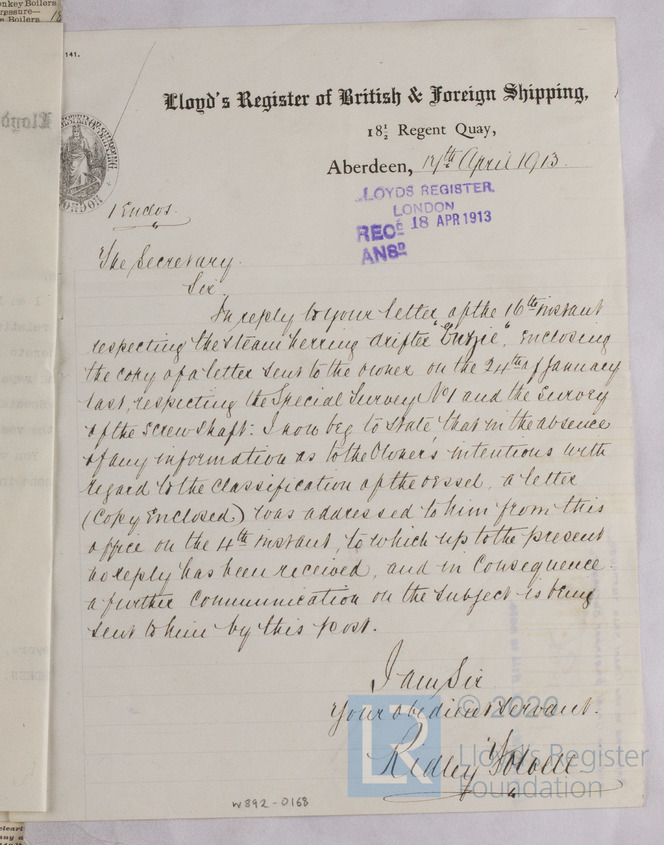 nkey Boilers
ressure—
Boilers
141.
Lloyd's Register of British & Foreign Shipping,
18½ Regent Quay,
Aberdeen, 17th April 1913.
LLOYDS REGISTER.
LONDON
RECD 18 APR 1913
ANSD
LONDON
1 Enclos.
The Secretary.
Sir,
In reply to your letter of the 16th instant
respecting the steam herring drifter "Enzie", enclosing
the copy of a letter sent to the owner on the 24th of January
last, respecting the Special Survey No 1 and the survey
of the screw shaft: I now beg to state that in the absence
of any information as to the Owner's intentions with
regard to the classification of the vessel, a letter
(Copy Enclosed) was addressed to him from this
office on the 4th instant, to which up to the present
no reply has been received, and in consequence
a further communication on the subject is being
sent to him by this post.
I am Sir
Your obedient servant.
Ridley
© 2020
LR
Lloyd's Register
Foundation
W892-0168